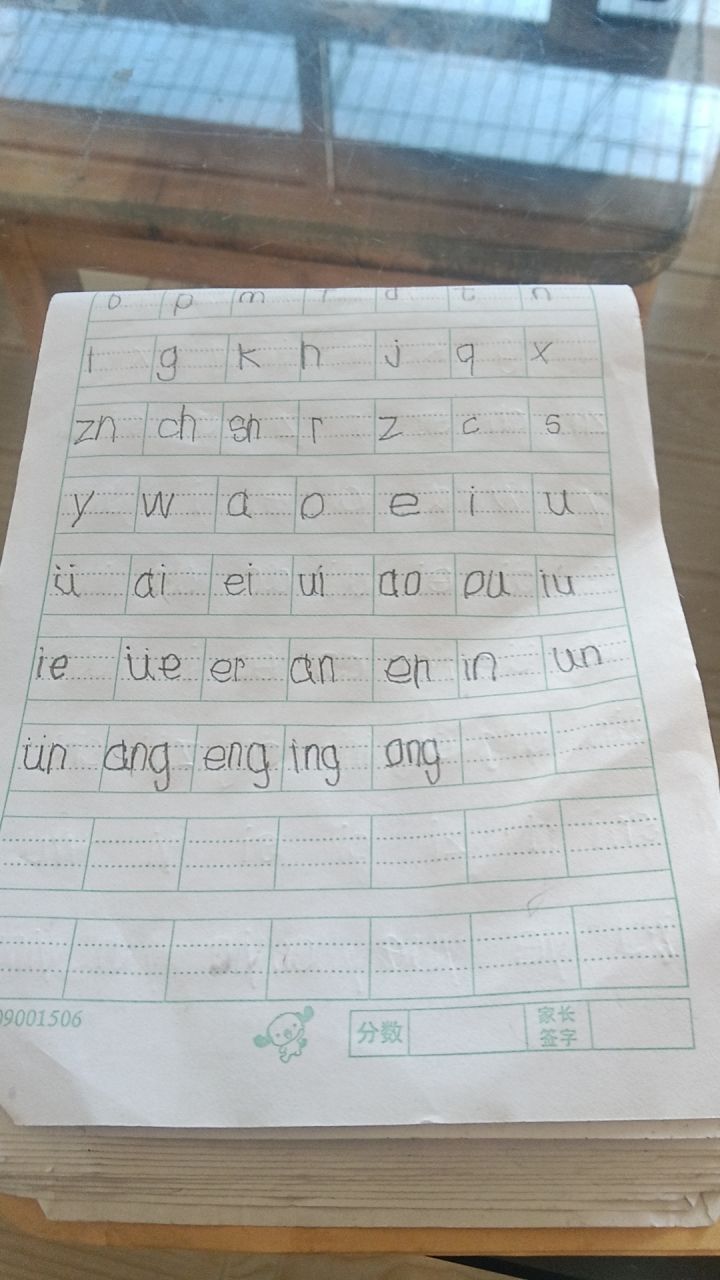 b p m f d t n
l g k h j q x
zh ch sh r z c s
y w a o e i u
ü ai ei ui ao ou iu
ie üe er an en in un
ün ang eng ing ong
09001506 分数 家长签字